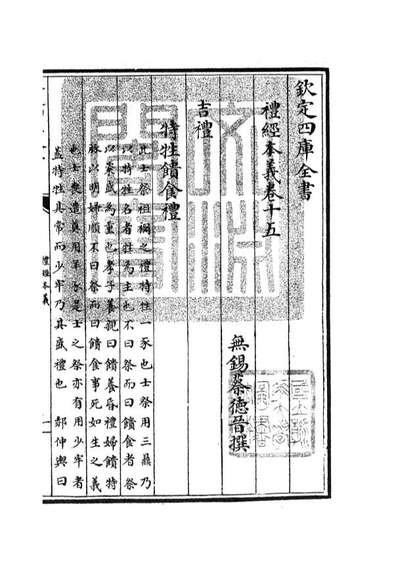 欽定四庫全書
禮經本義卷十五
無錫蔡德晉撰
吉禮
特牲饋食禮
此士祭祖禰之禮特牲一豕也士祭用三鼎乃
以特牲名者牲為主也不曰祭而曰饋食者祭
以粢盛為重也孝子養親曰饋養昏禮婦饋特
豚以明婦順不曰祭而曰饋食事死如生之義
也士喪遣奠用羊豕是士之祭亦有用少牢者
葢特牲其常而少牢乃其盛禮也 郝仲輿曰
禮經本義
一
文淵閣寶